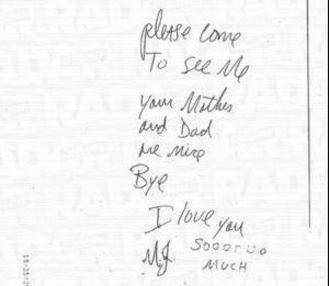 please come
To see Me
your Mother
and Dad
are nice
Bye
I love you
M.J. Soooo
MUCH